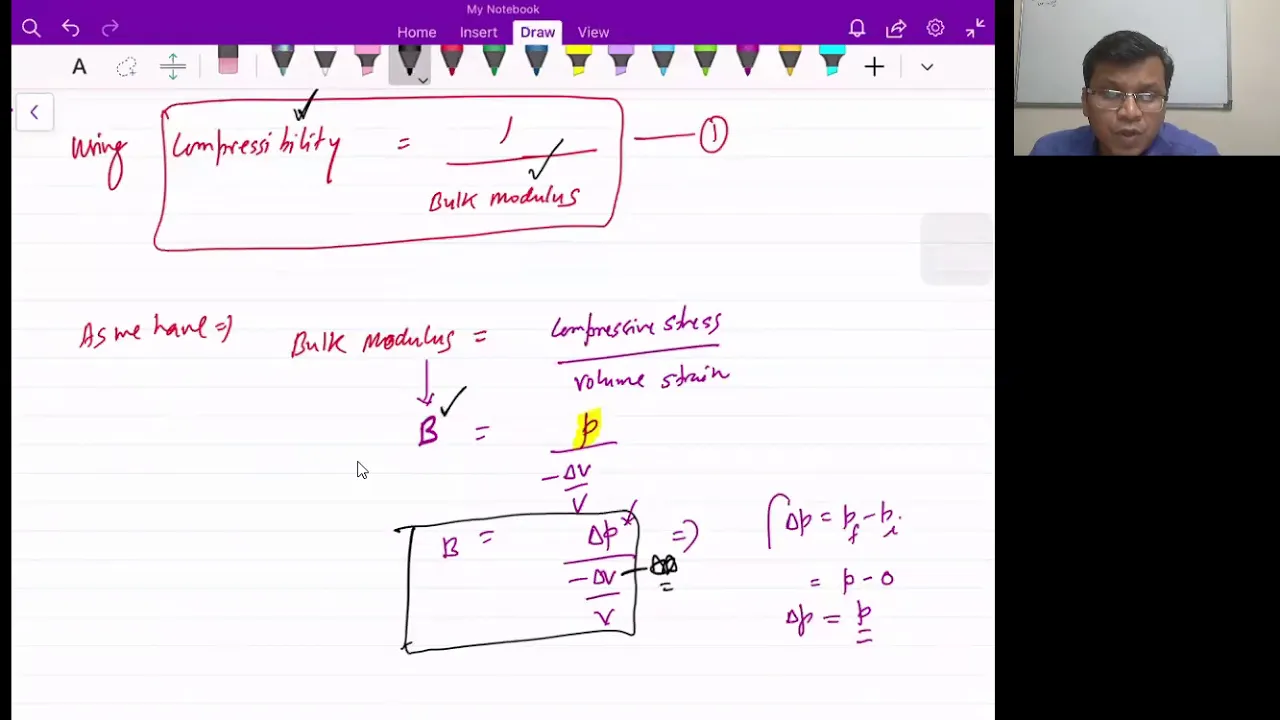 My Notebook
Home Insert Draw View
A
Using Compressibility = 1 / Bulk modulus — ①
As we have => Bulk modulus = Compressive stress / volume strain
B = p / -ΔV/V
B = Δp / -ΔV/V =>
Δp = pf - pi
= p - 0
Δp = p